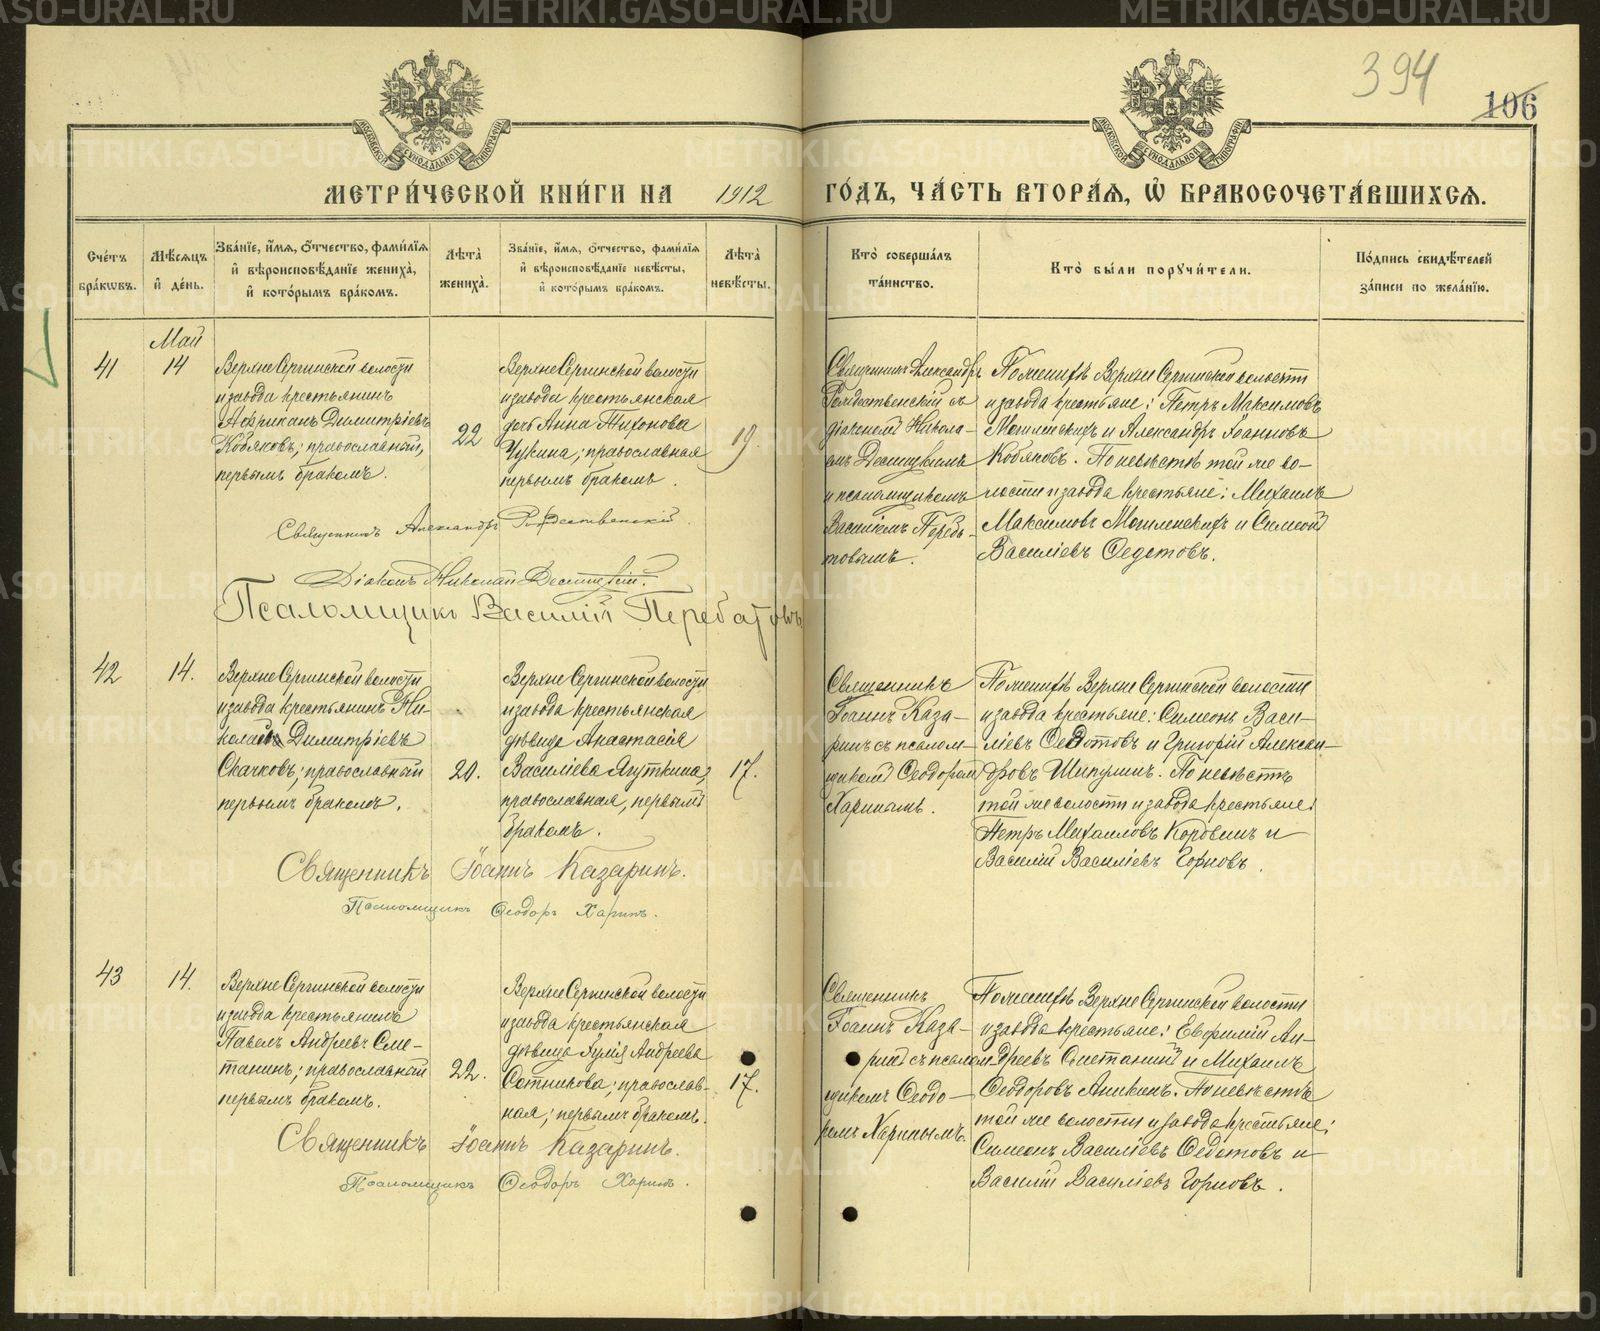 394
106
МЕТРИЧЕСКОЙ КНИГИ НА 1912 ГОДЪ, ЧАСТЬ ВТОРАЯ, Ѡ БРАКОСОЧЕТАВШИХСЯ.
Счетъ браковъ.
Мѣсяцъ и день.
Званіе, имя, отчество, фамилія и вѣроисповѣданіе жениха, и которымъ бракомъ.
Лѣта жениха.
Званіе, имя, отчество, фамилія и вѣроисповѣданіе невѣсты, и которымъ бракомъ.
Лѣта невѣсты.
Кто совершалъ таинство.
Кто были поручители.
Подпись свидѣтелей записи по желанію.
Май
41
14
Верхне Сергинской волости
и завода крестьянинъ
Африканъ Димитріевъ
Кобяковъ; православный,
первымъ бракомъ.
22
Верхне Сергинской волости
и завода крестьянская
дочь Анна Тихонова
Чукина; православная
первымъ бракомъ.
19.
Священникъ Александръ
Рождественскій съ
діакономъ Никола-
емъ Десницкимъ
и псаломщикомъ
Василіемъ Перебо-
товымъ.
По женихѣ Верхне Сергинской волости
и завода крестьяне: Петръ Максимовъ
Могиленскихъ и Александръ Іоанновъ
Кобяковъ. По невѣстѣ той же во-
лости и завода крестьяне: Михаилъ
Максимовъ Могиленскихъ и Симеонъ
Василіевъ Федотовъ.
Священникъ Александръ Рождественскій.
Діаконъ Николай Десницкій.
Псаломщикъ Василій Перебатовъ
42
14.
Верхне Сергинской волости
и завода крестьянинъ Ни-
колай Димитріевъ
Скачковъ; православный
первымъ бракомъ.
20.
Верхне Сергинской волости
и завода крестьянская
дѣвица Анастасія
Василіева Ягуткина;
православная, первымъ
бракомъ.
17.
Священникъ
Іоаннъ Каза-
ринъ съ псалом-
щикомъ Ѳеодоромъ
Харинымъ.
По женихѣ Верхне Сергинской волости
и завода крестьяне: Симеонъ Васи-
ліевъ Федотовъ и Григорій Алексан-
дровъ Шипулинъ. По невѣстѣ
той же волости и завода крестьяне:
Петръ Михаиловъ Кордюинъ и
Василій Василіевъ Горновъ.
Священникъ Іоаннъ Казаринъ.
Псаломщикъ Ѳеодоръ Харинъ.
43
14.
Верхне Сергинской волости
и завода крестьянинъ
Павелъ Андреевъ Сме-
танинъ; православный
первымъ бракомъ.
22.
Верхне Сергинской волости
и завода крестьянская
дѣвица Іулія Андреева
Сотникова; православ-
ная; первымъ бракомъ.
17.
Священникъ
Іоаннъ Каза-
ринъ съ псалом-
щикомъ Ѳеодо-
ромъ Харинымъ.
По женихѣ Верхне Сергинской волости
и завода крестьяне: Евфимій Ан-
дреевъ Сметанинъ и Михаилъ
Ѳеодоровъ Аникинъ. По невѣстѣ
той же волости и завода крестьяне:
Симеонъ Василіевъ Федотовъ и
Василій Василіевъ Горновъ.
Священникъ Іоаннъ Казаринъ.
Псаломщикъ Ѳеодоръ Харинъ.
METRIKI.GASO-URAL.RU